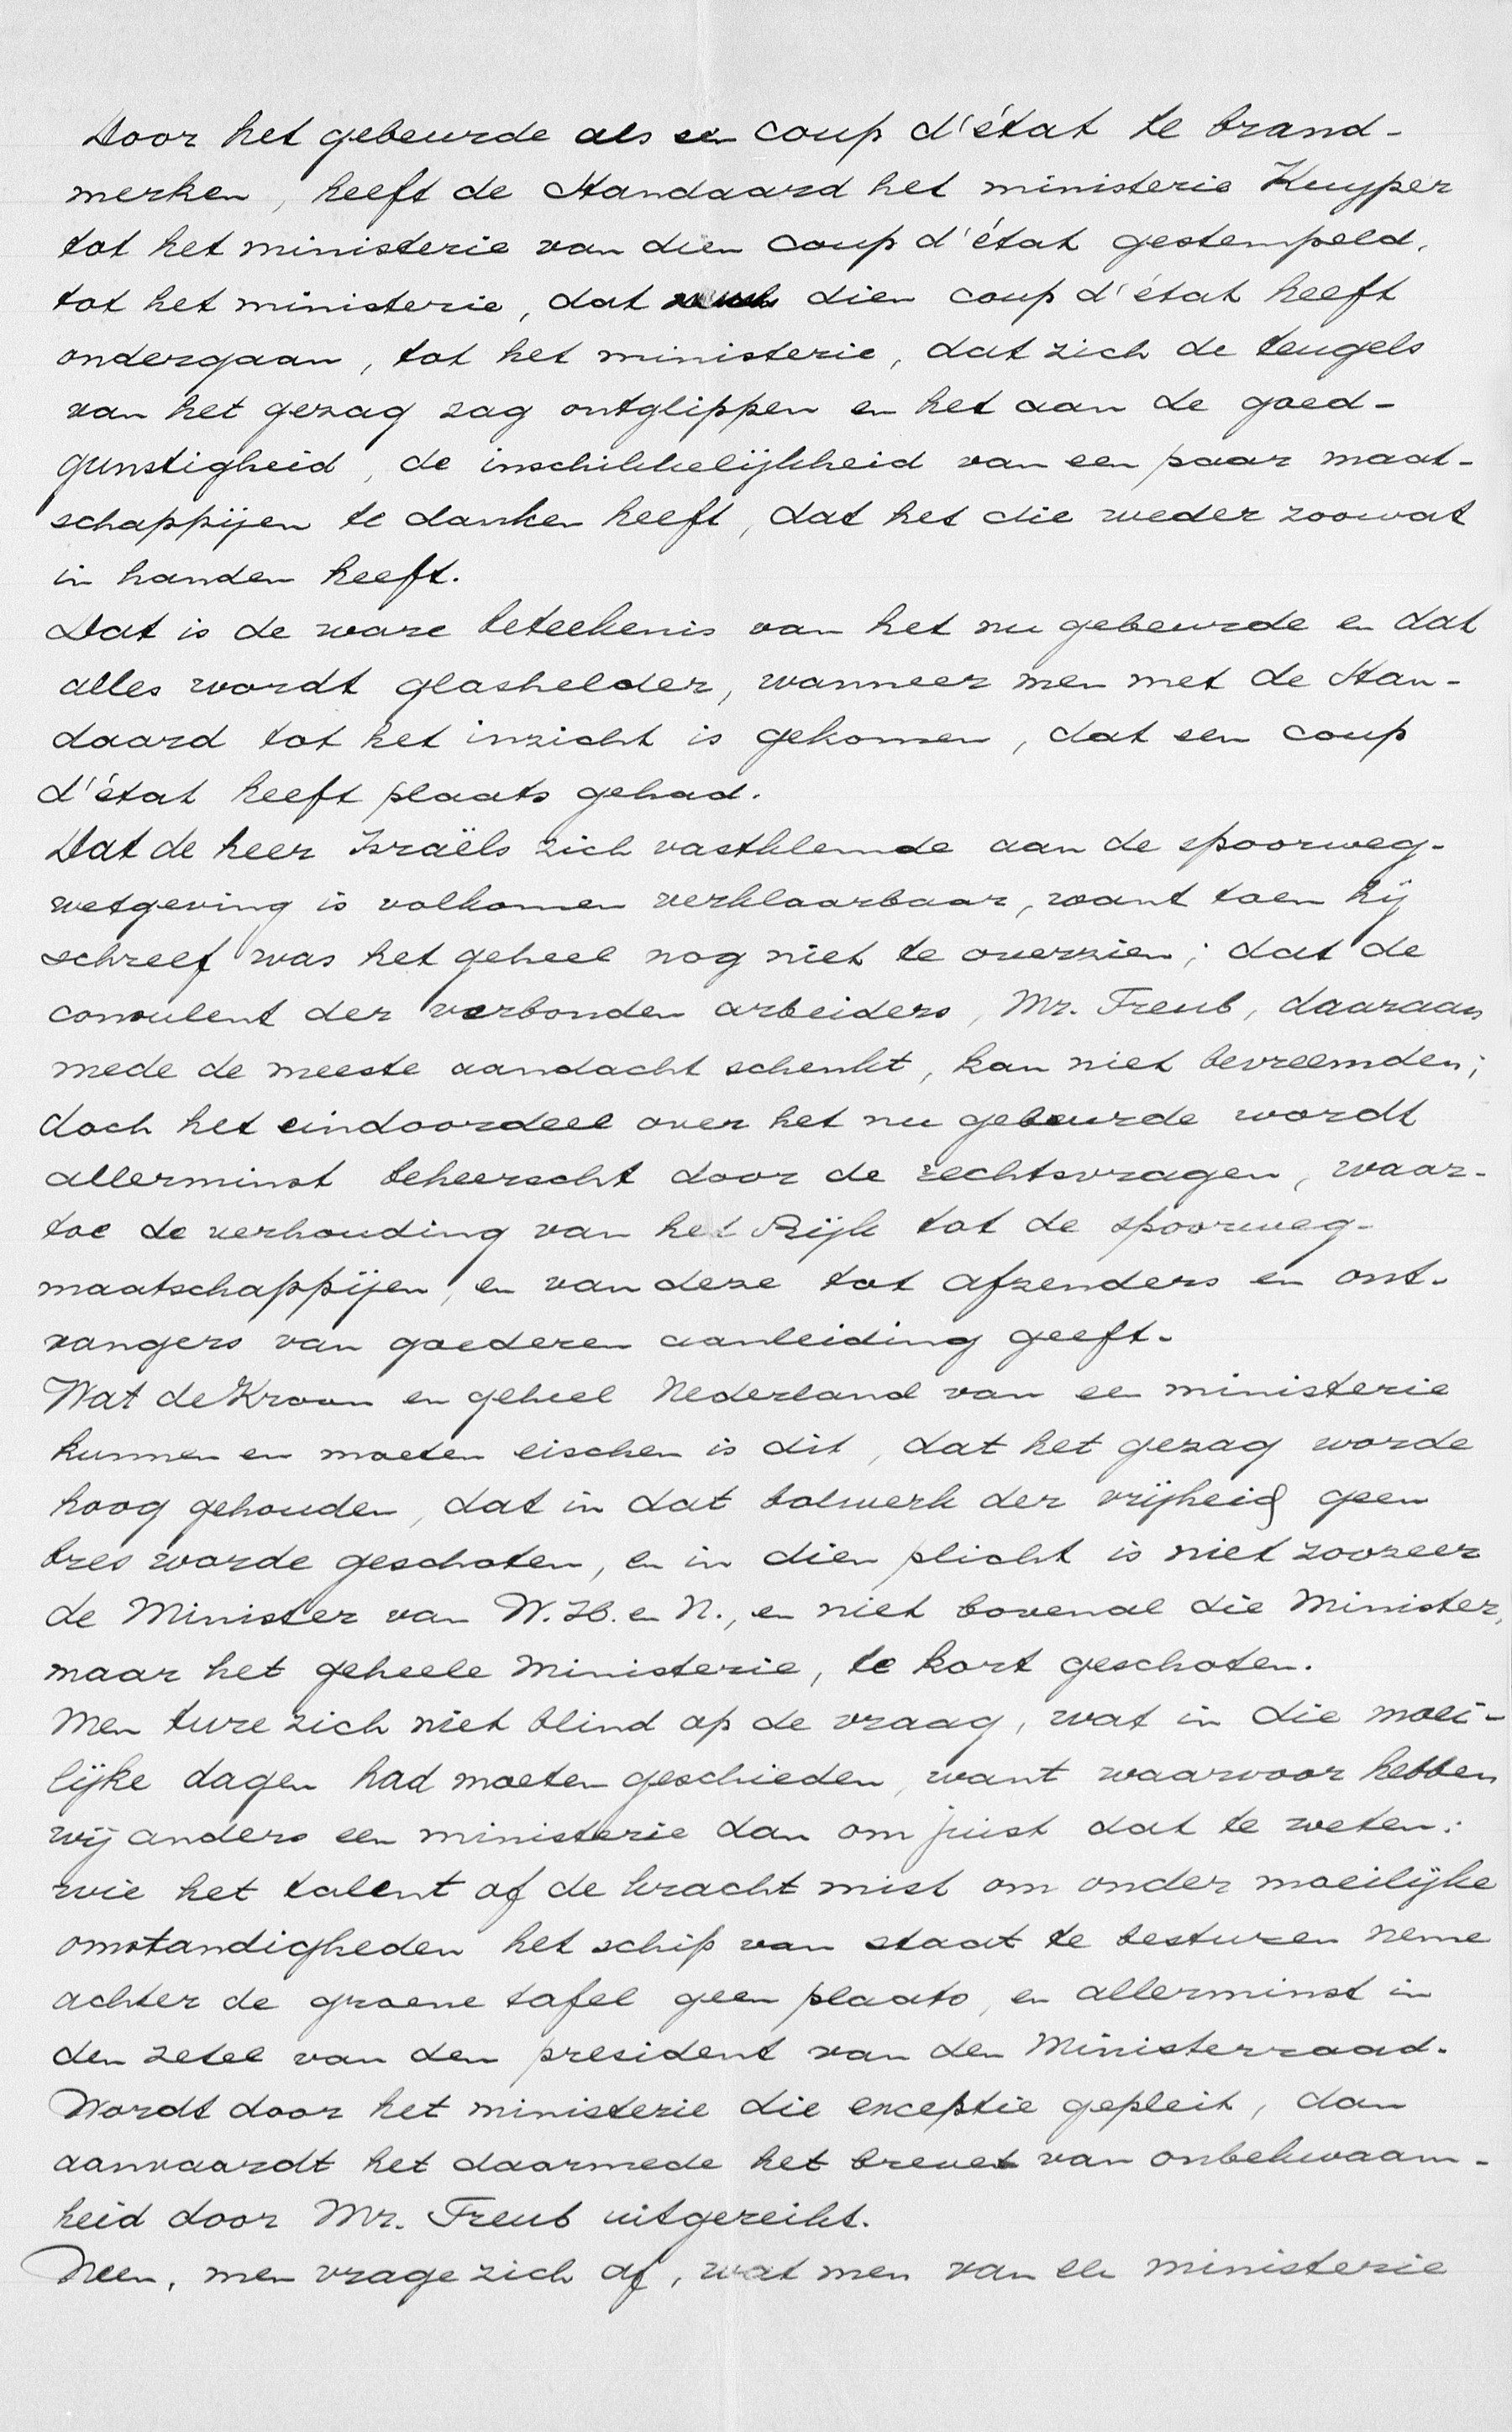 Door het gebeurde als een coup d'état te brand-
merken, heeft de Standaard het ministerie Kuyper
tot het ministerie van dien coup d'état gestempeld,
tot het ministerie, dat dien coup d'état heeft
ondergaan, tot het ministerie, dat zich de teugels
van het gezag zag ontglippen en het aan de goed-
gunstigheid, de inschikkelijkheid van een paar maat-
schappijen te danken heeft, dat het die weder zoowat
in handen heeft.
Dat is de ware beteekenis van het nu gebeurde en dat
alles wordt glashelder, wanneer men met de Stan-
daard tot het inzicht is gekomen, dat een coup
d'état heeft plaats gehad.
Dat de heer Israëls zich vastklemde aan de spoorweg-
wetgeving is volkomen verklaarbaar, want toen hij
schreef was het geheel nog niet te overzien; dat de
consulent der verbonden arbeiders, Mr. Treub, daaraan
mede de meeste aandacht schenkt, kan niet bevreemden;
doch het eindoordeel over het nu gebeurde wordt
allerminst beheerscht door de rechtsvragen, waar-
toe de verhouding van het Rijk tot de spoorweg-
maatschappijen, en van deze tot afzenders en ont-
vangers van goederen aanleiding geeft.
Wat de Kroon en geheel Nederland van een ministerie
kunnen en moeten eischen is dit, dat het gezag worde
hoog gehouden, dat in dat bolwerk der vrijheid geen
bres worde geschoten, en in dien plicht is niet zoozeer
de Minister van W. H. en N., en niet bovenal die Minister,
maar het geheele Ministerie, te kort geschoten.
Men ture zich niet blind op de vraag, wat in die moei-
lijke dagen had moeten geschieden, want waarvoor hebben
wij anders een ministerie dan om juist dat te weten:
wie het talent of de kracht mist om onder moeilijke
omstandigheden het schip van staat te besturen neme
achter de groene tafel geen plaats, en allerminst in
den zetel van den president van den Ministerraad.
Wordt door het ministerie die exceptie gepleit, dan
aanvaardt het daarmede het brevet van onbekwaam-
heid door Mr. Treub uitgereikt.
Neen, men vrage zich af, wat men van een ministerie